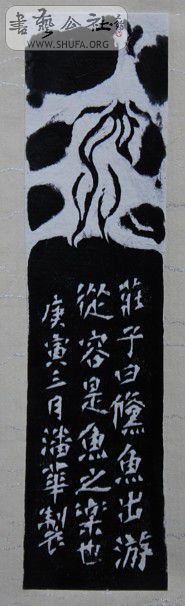 書藝公社
WWW.SHUFA.ORG
莊子曰儵魚出游
從容是魚之楽也
庚寅三月潘華製